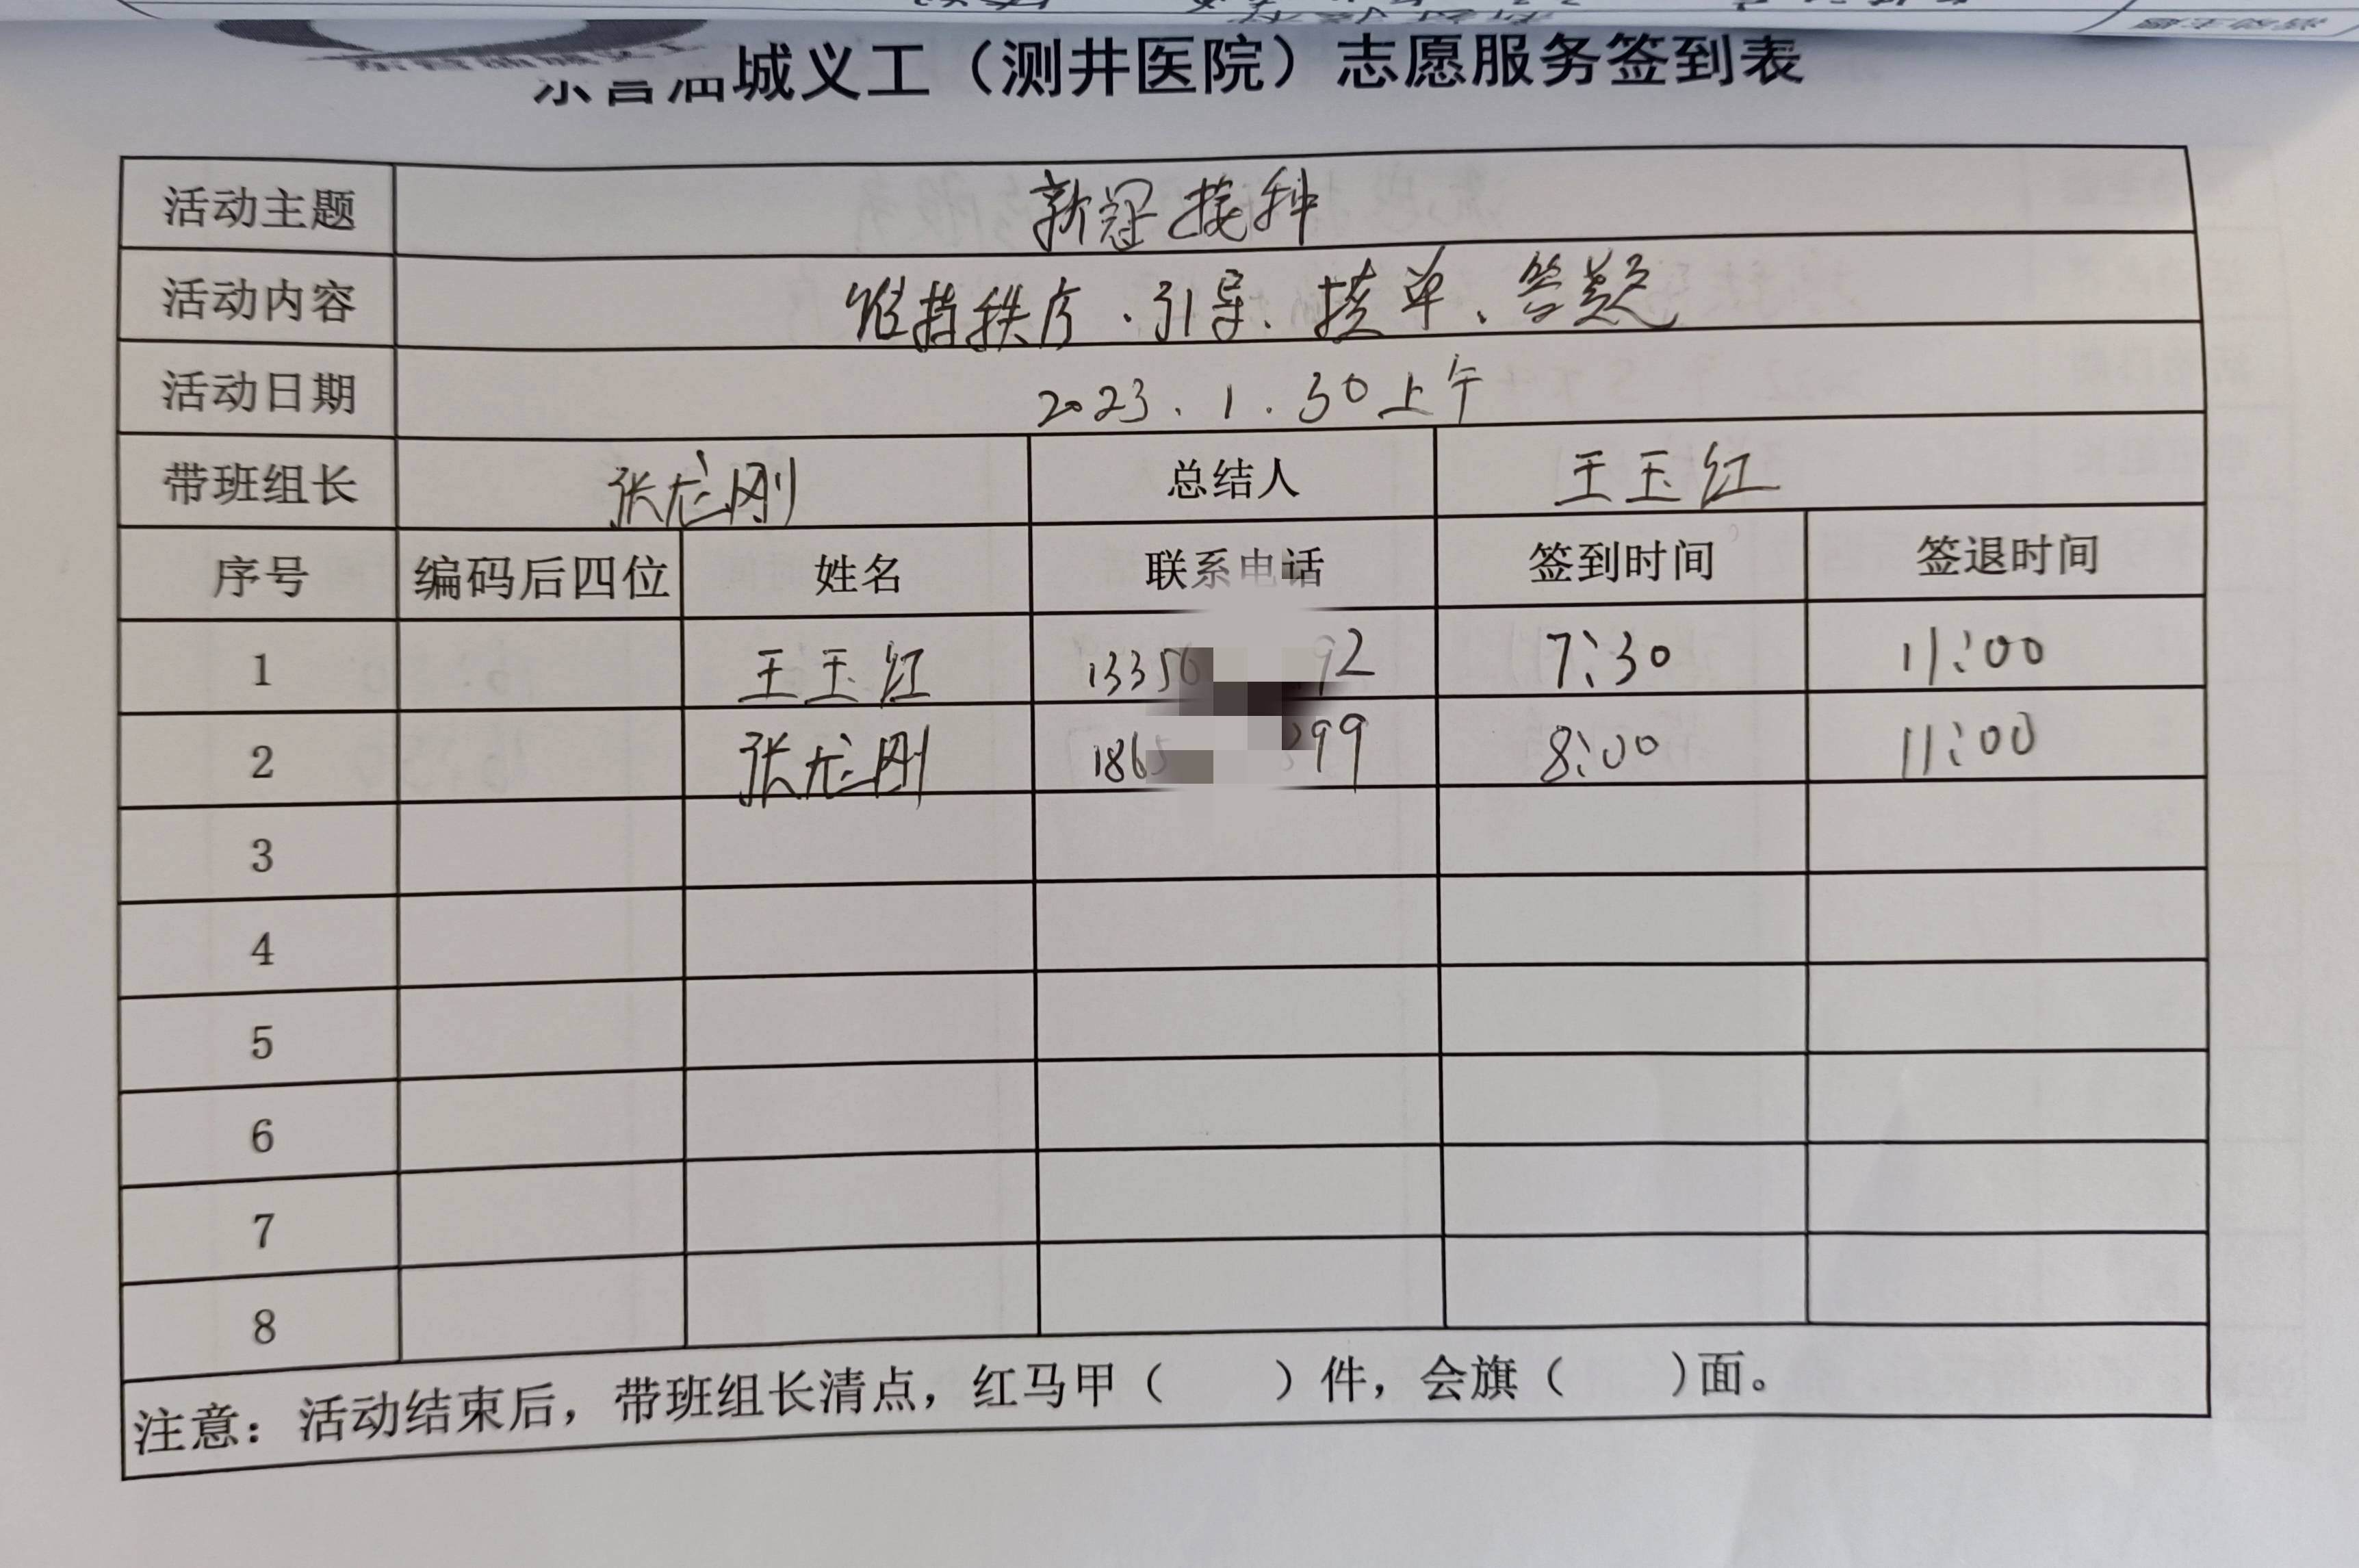 东营油城义工（测井医院）志愿服务签到表
活动主题 新冠接种
活动内容 维持秩序、引导、接单、答题
活动日期 2023.1.30上午
带班组长 张龙刚 总结人 王玉红
序号 编码后四位 姓名 联系电话 签到时间 签退时间
1 王玉红 13356 92 7:30 11:00
2 张龙刚 1865 299 8:00 11:00
3
4
5
6
7
8
注意：活动结束后，带班组长清点，红马甲（ ）件，会旗（ ）面。